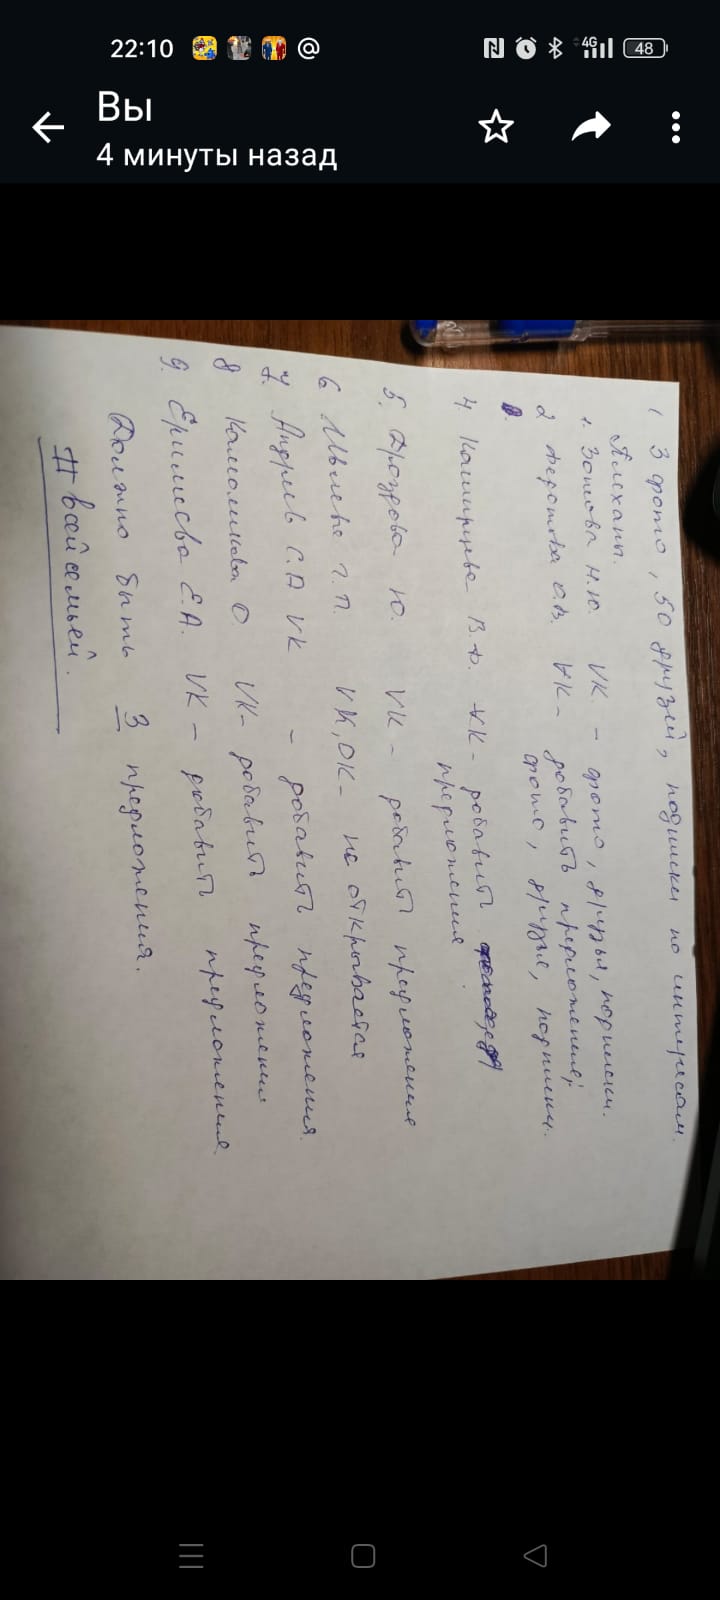 22:10
4G
48
Вы
4 минуты назад
1 3 фото, 50 друзей, подписки по интересам.
Плеханы.
1. Зотова Н.Ю. VK. - фото, друзья, подписки.
2 Федотова О.В. VK- добавить предложения;
фото, друзья, подписки.
4. Каширцева В.Ф. VK- добавить
предложения.
5. Дроздова Ю. VK - добавить предложения
6. Г.П. VK, OK- не открывается
7. Андреев С.А VK - добавить предложения.
8 О VK- добавить предложения
9. Еримеева Е.А. VK - добавить предложения.
Должно быть 3 предложения.
# всейсемьей.